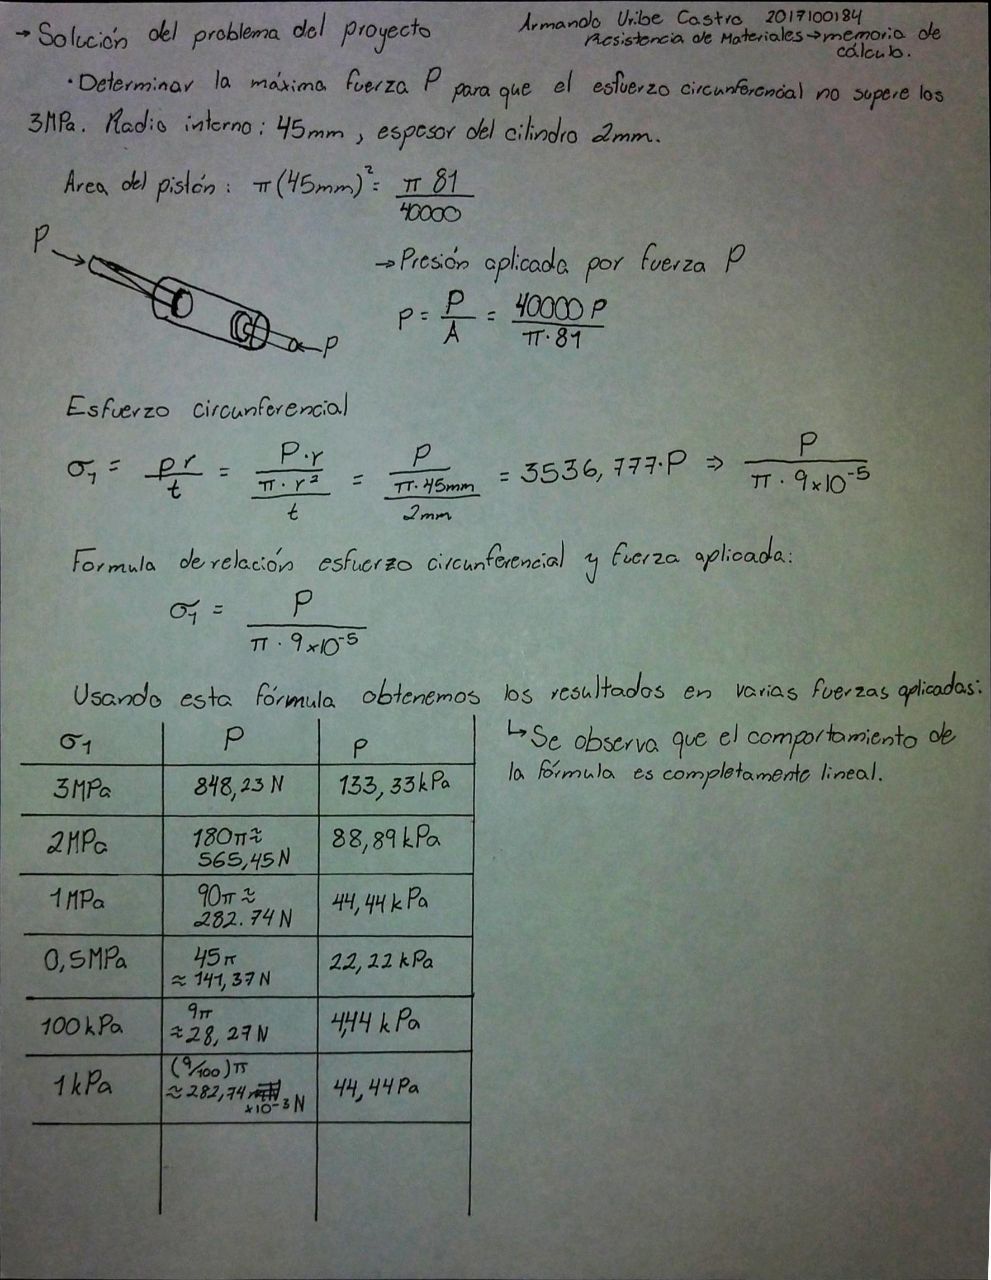 → Solución del problema del proyecto
Armando Uribe Castro 2017100184
Resistencia de Materiales → memoria de
cálculo.
· Determinar la máxima fuerza P para que el esfuerzo circunferencial no supere los
3MPa. Radio interno: 45mm, espesor del cilindro 2mm.
Area del pistón: π(45mm)² = π 81 / 40000
P
P
→ Presión aplicada por fuerza P
P = P/A = 40000 P / π·81
Esfuerzo circunferencial
σ₁ = pr/t = (P·r / π·r²) / t = (P / π·45mm) / 2mm = 3536,777·P ⇒ P / π·9x10⁻⁵
Formula de relación esfuerzo circunferencial y fuerza aplicada:
σ₁ = P / π·9x10⁻⁵
Usando esta fórmula obtenemos los resultados en varias fuerzas aplicadas:
↳ Se observa que el comportamiento de
la fórmula es completamente lineal.
σ₁ P P
3MPa 848,23 N 133,33kPa
2MPa 180π≈ 565,45N 88,89kPa
1MPa 90π≈ 282.74N 44,44kPa
0,5MPa 45π ≈141,37N 22,22kPa
100kPa 9π ≈28,27N 4,44 kPa
1kPa (9/100)π ≈282,74 x10⁻³N 44,44Pa